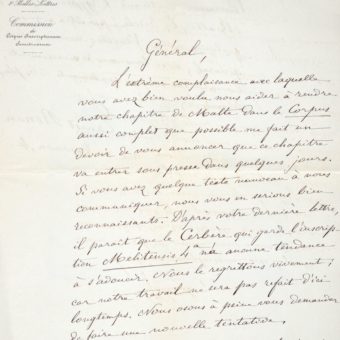 & Belles-Lettres
Commission
du
Corpus Inscriptionum
Semiticarum
Général,
L'extrême complaisance avec laquelle
vous avez bien voulu nous aider à rendre
notre chapitre de Malte dans le Corpus
aussi complet que possible me fait un
devoir de vous annoncer que ce chapitre
va entrer sous presse dans quelques jours.
Si vous avez quelque texte nouveau à nous
communiquer, nous vous en serions bien
reconnaissants. D'après votre dernière lettre,
il paraît que le Cerbère qui garde l'inscrip-
tion Melitensis 4ª n'a aucune tendance
à s'adoucir. Nous le regrettons vivement;
car notre travail ne sera pas refait d'ici
longtemps. Nous osons à peine vous demander
de faire une nouvelle tentative.